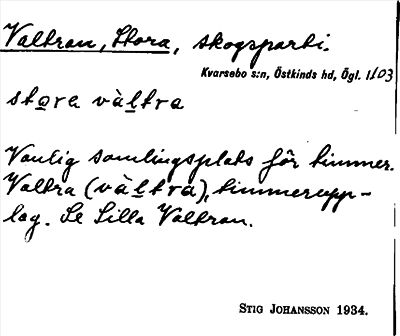 Valtran, Stora, skogsparti.
Kvarsebo s:n, Östkinds hd, Ögl. 1103
stọra vàḷtra
Vanlig samlingsplats för timmer.
Valtra (vàḷtra), timmerupp-
lag. Se Lilla Valtran.
STIG JOHANSSON 1934.